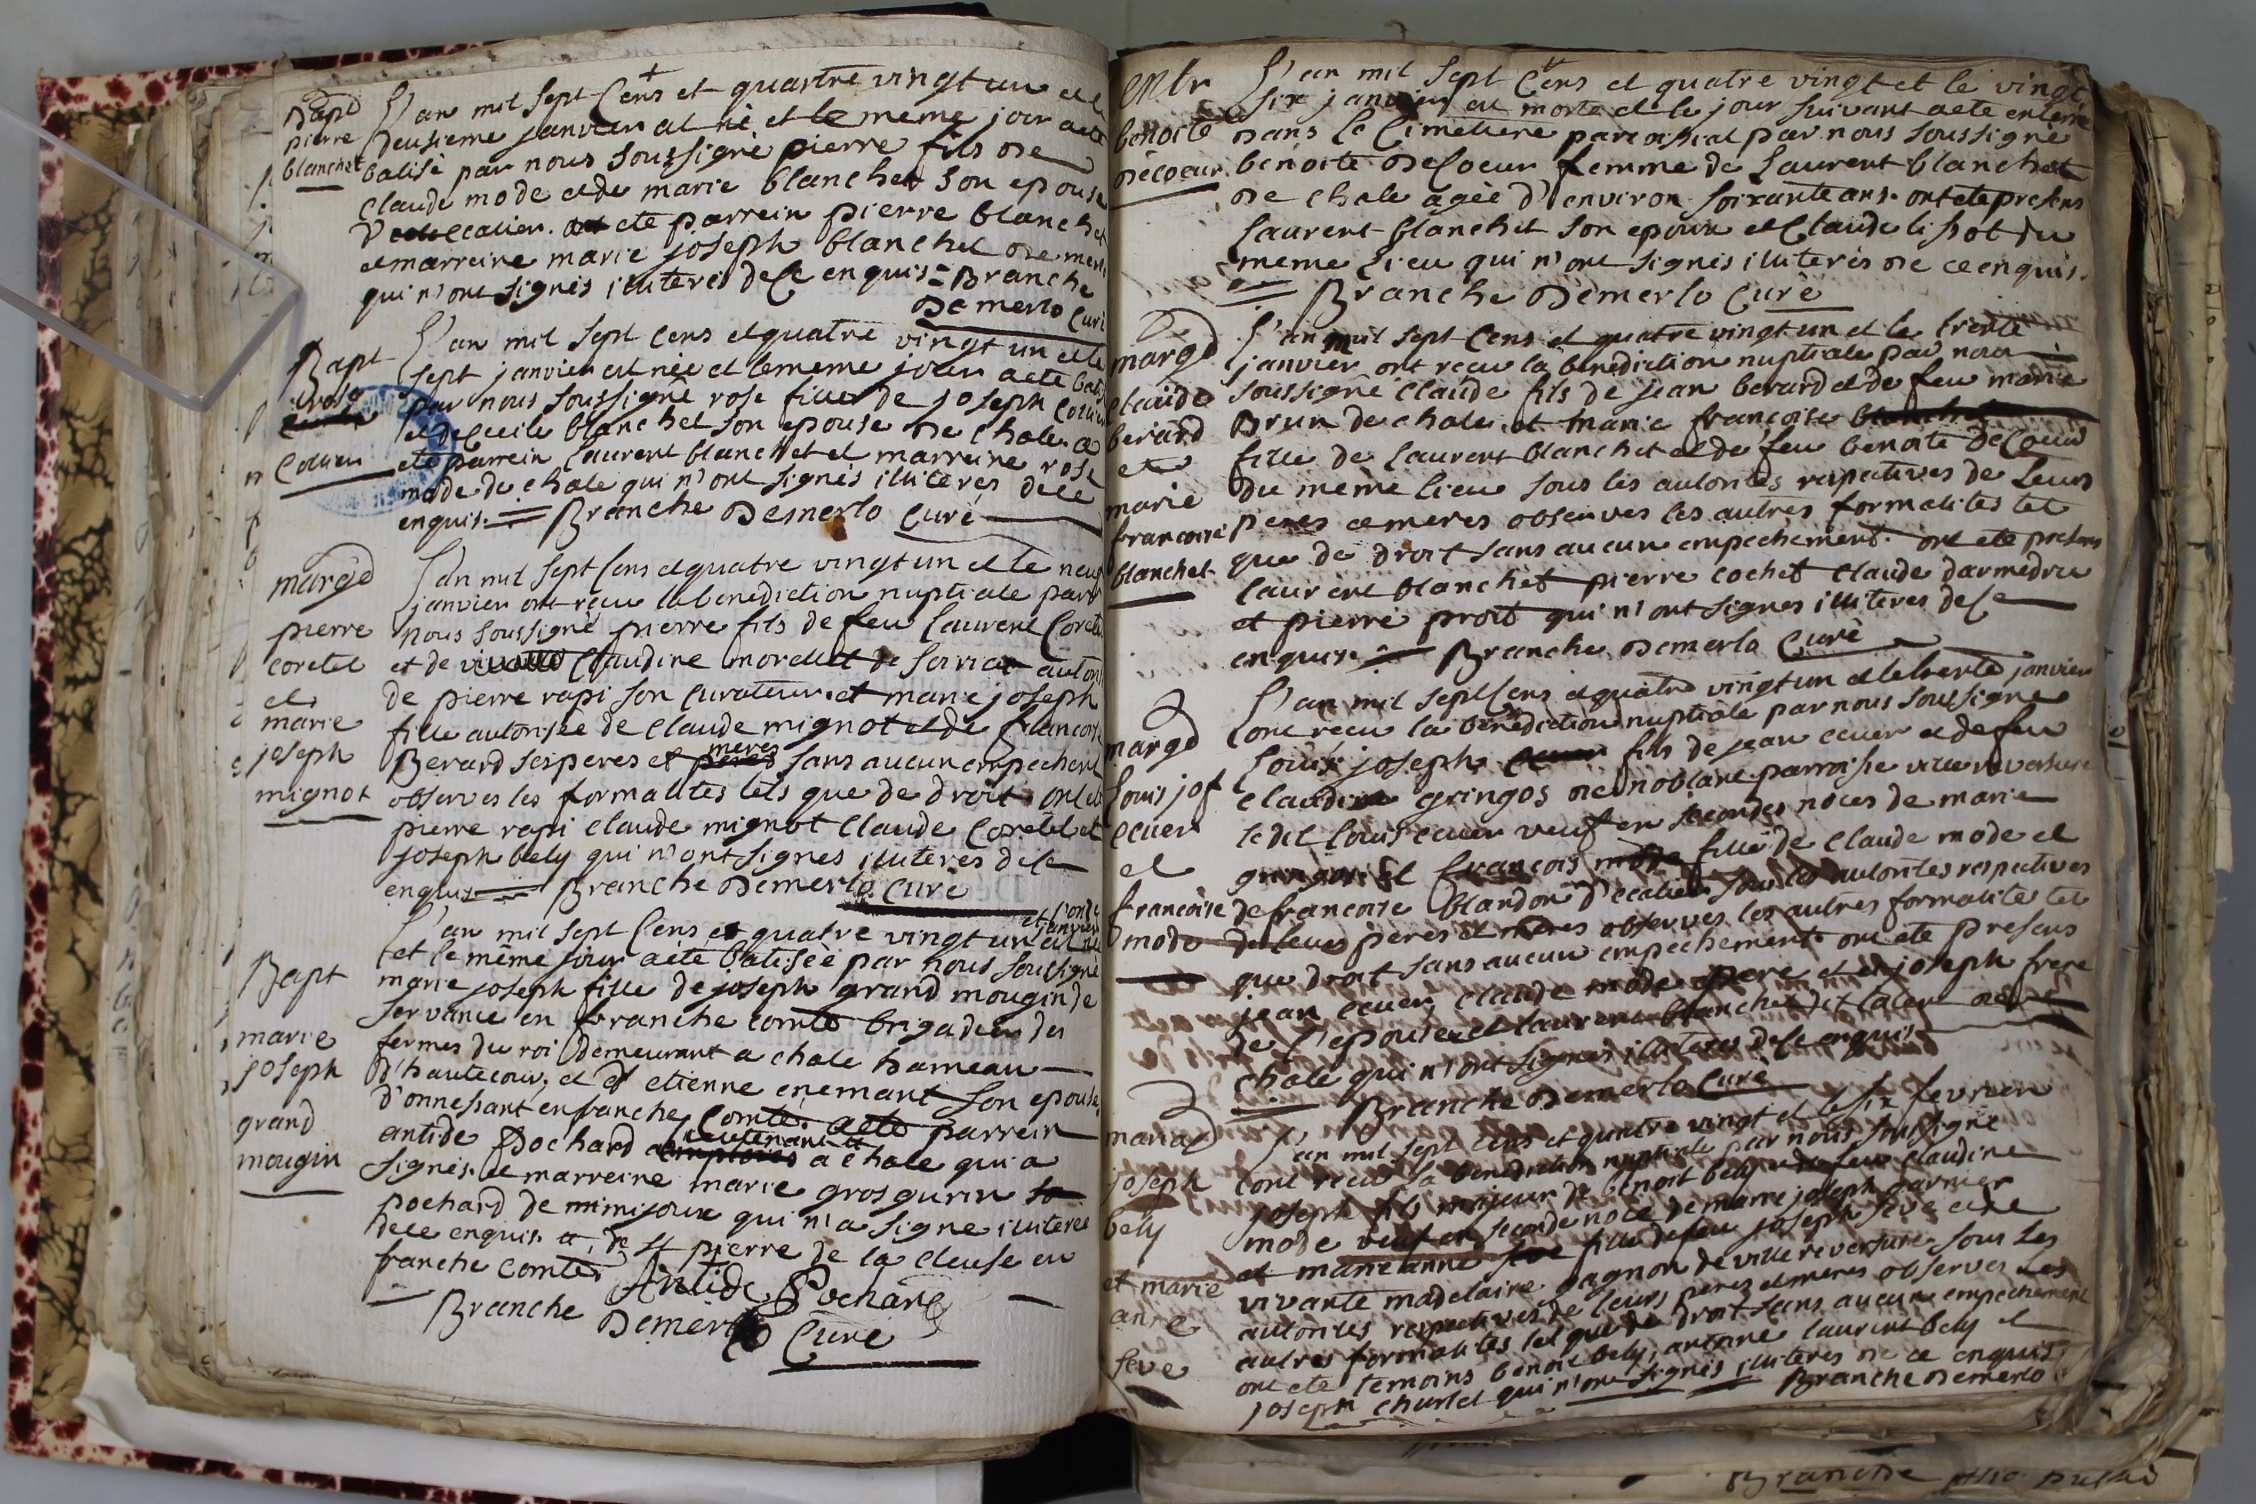 Bapt
pierre
blanchet
L'an mil sept Cens et quartre vingt un et le
deusieme janvier at né et le meme jour aete
batisé par nous soussigné pierre fils de
claude mode et de marie blanchet son epouse
D'ecatieu. ete parrein pierre blanchet
et marreine marie joseph blanchet de
qui n'ont signés illiterés de ce enquis = Branche
Demerlo curé
Bapt
rose
L'an mil sept cens et quatre vingt un et le
sept janvier est née et le meme jour aete
par nous soussigné rose fille de joseph
et de Cecile blanchet son epouse de chale a
ete parrein laurent blanchet et marreine rose
mode de chale qui n'ont signés illiterés de ce
enquis. = Branche Demerlo curé
marge
pierre
coretel
et
marie
joseph
mignot
L'an mil sept Cens et quatre vingt un et le neuf
janvier ont reçu la benediction nuptiale par
nous soussigné pierre fils de feu laurent
et de claudine
de pierre rapi son curateur et marie joseph
fille autorisée de claude mignot et de francoise
Berard ses peres et meres sans aucun empechement
observes les formalites tels que de droit. ont ete
pierre rapi claude mignot claude Coretel et
joseph bely qui n'ont signés illiteres de ce
enquis = Branche Demerlo curé
Bapt
marie
joseph
grand
mougin
et l'onze
janvier
L'an mil sept Cens et quatre vingt un est née
et le même jour aété batisée par nous soussigné
marie joseph fille de joseph grand mougin de
servance en franche comté brigadier des
fermes du roi demeurant a chale hameau
d'hautecour, et d'etienne enemant son epouse
d'onnesant en franche Comté. aete parrein
antide Pochard lieutenant a chale qui a
signés. et marreine marie grosgurin
pochard de mimijoux qui n'a signé illiteree
de ce enquis. de st pierre de la cleuse en
franche comté.
Antide Pochard
Branche Demerlo Curé
entr
benoite
decoeur
L'an mil sept Cens et quatre vingt et le vingt
six janvier est morte et le jour suivant aete enterré
dans le Cimetiere paroissial par nous soussigné
benoite deCoeur femme de laurent blanchet
de chale agée d'environ soixante ans. ont ete presens
laurent blanchet son epoux et Claude du
meme lieu qui n'ont signés illiterés de ce enquis.
Branche Demerlo Curé
marge
claude
berard
et
marie
francoise
blanchet
L'an mil sept Cens et quatre vingt un et le trente
janvier ont reçu la benediction nuptiale par nous
soussigné claude fils de jean berard et de feu marie
Brun de chale. et marie françoise
fille de laurent blanchet et de feu benoite deCoeur
du même lieu sous les autorités respectives de leurs
peres et meres observes les autres formalites tel
que de droit sans aucun empechement. ont ete presens
laurent blanchet pierre cochet claude darmedru
et pierre proit qui n'ont signes illiteres de ce
enquis. = Branche Demerlo Curé
marge
louis jos
ecuer
et
francoise
mode
L'an mil sept Cens et quatre vingt un et le trente janvier
ont reçu la benediction nuptiale par nous soussigné
louis joseph fils de jean ecuer et de feu
claudine gringos de noblane parroisse villereversure
le dit louis ecuer veuf en secondes noces de marie
et françois mode fille de claude mode et
de francoise blandon d'ecatieu sous les autorites respectives
de leurs peres et meres observes les autres formalites tel
que droit sans aucun empechement. ont ete presens
jean ecuer, claude mode pere et joseph frere
de l'epouse et laurent blanchet dit de
chale qui n'ont signés illiteres de ce enquis
Branche Demerlo Curé
mariag
joseph
bely
et marie
anne
seve
L'an mil sept cens et quatre vingt et le six fevrier
ont reçu la benediction nuptiale par nous soussigné
joseph fils majeur de benoit bely et de feu claudine
mode veuf en seconde noce de marie joseph garnier
et marie anne seve fille de feu joseph seve et de
vivante madelaine gagnon de villereversure sous les
autorites respectives de leurs peres et meres observes les
autres formalites tel que de droit sans aucun empechement
ont ete temoins benoit bely, antoine laurent bely et
joseph churlet qui n'ont signés illiteres de ce enquis
Branche Demerlo
Branche